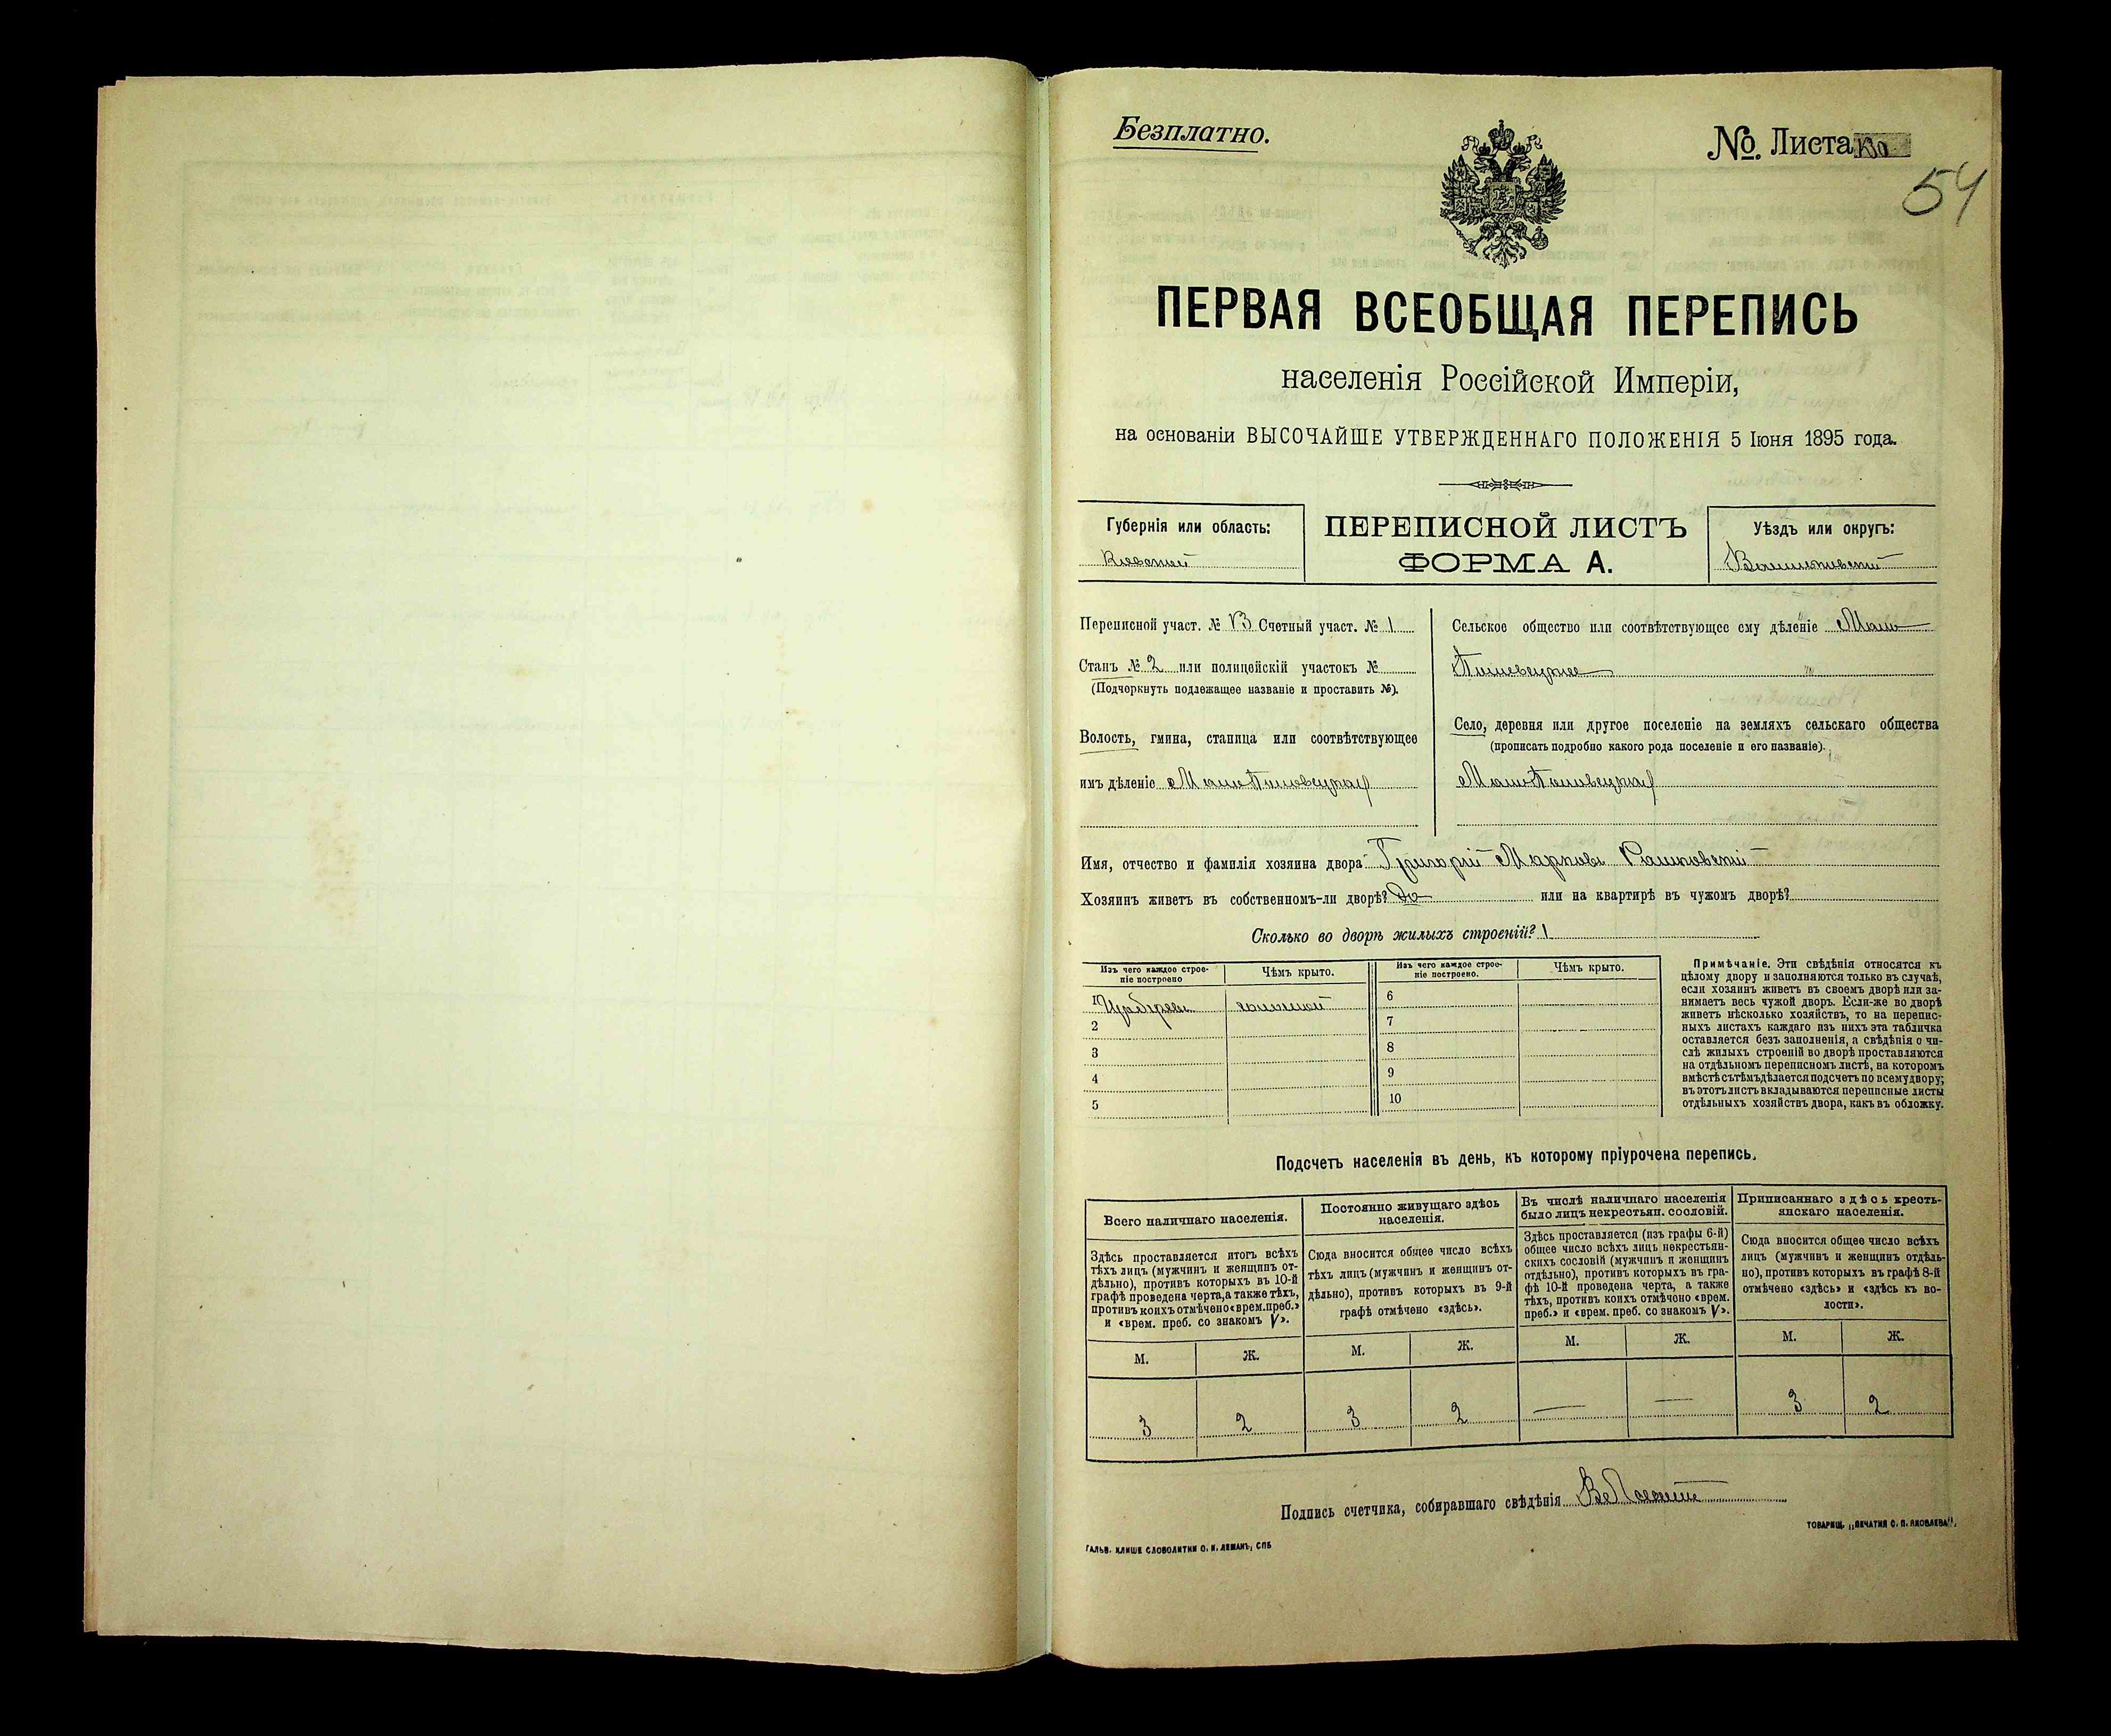 Безплатно.
№ Листа 130
54
ПЕРВАЯ ВСЕОБЩАЯ ПЕРЕПИСЬ
населенія Россійской Имперіи,
на основаніи ВЫСОЧАЙШЕ УТВЕРЖДЕННАГО ПОЛОЖЕНІЯ 5 Іюня 1895 года.
Губернія или область:
Кіевской
ПЕРЕПИСНОЙ ЛИСТЪ
ФОРМА А.
Уѣздъ или округъ:
Васильковскій
Переписной участ. № 13 Счетный участ. № 1
Станъ № 2 или полицейскій участокъ №
(Подчоркнуть подлежащее названіе и проставить №).
Волость, гмина, станица или соотвѣтствующее
имъ дѣленіе Мало Половецкая
Сельское общество или соотвѣтствующее ему дѣленіе Мало
Половецкое
Село, деревня или другое поселеніе на земляхъ сельскаго общества
(прописать подробно какого рода поселеніе и его названіе).
Мало Половецкая
Имя, отчество и фамилія хозяина двора Григорій Марковъ
Хозяинъ живетъ въ собственномъ-ли дворѣ? Да или на квартирѣ въ чужомъ дворѣ?
Сколько во дворѣ жилыхъ строеній? 1
Изъ чего каждое строе-
ніе построено
Чѣмъ крыто.
Изъ чего каждое строе-
ніе построено.
Чѣмъ крыто.
1 Изъ дерева соломой
2
3
4
5
6
7
8
9
10
Примѣчаніе. Эти свѣдѣнія относятся къ
цѣлому двору и заполняются только въ случаѣ,
если хозяинъ живетъ въ своемъ дворѣ или за-
нимаетъ весь чужой дворъ. Если-же во дворѣ
живетъ нѣсколько хозяйствъ, то на перепис-
ныхъ листахъ каждаго изъ нихъ эта табличка
оставляется безъ заполненія, а свѣдѣнія о чи-
слѣ жилыхъ строеній во дворѣ проставляются
на отдѣльномъ переписномъ листѣ, на которомъ
вмѣстѣ съ тѣмъ дѣлается подсчетъ по всему двору;
въ этотъ листъ вкладываются переписные листы
отдѣльныхъ хозяйствъ двора, какъ въ обложку.
Подсчетъ населенія въ день, къ которому пріурочена перепись.
Всего наличнаго населенія.
Здѣсь проставляется итогъ всѣхъ
тѣхъ лицъ (мужчинъ и женщинъ от-
дѣльно), противъ которыхъ въ 10-й
графѣ проведена черта, а также тѣхъ,
противъ коихъ отмѣчено «врем. преб.»
и «врем. преб. со знакомъ V».
Постоянно живущаго здѣсь
населенія.
Сюда вносится общее число всѣхъ
тѣхъ лицъ (мужчинъ и женщинъ от-
дѣльно), противъ которыхъ въ 9-й
графѣ отмѣчено «здѣсь».
Въ числѣ наличнаго населенія
было лицъ некрестьян. сословій.
Здѣсь проставляется (изъ графы 6-й)
общее число всѣхъ лицъ некрестьян-
скихъ сословій (мужчинъ и женщинъ
отдѣльно), противъ которыхъ въ гра-
фѣ 10-й проведена черта, а также
тѣхъ, противъ коихъ отмѣчено «врем.
преб.» и «врем. преб. со знакомъ V».
Приписаннаго здѣсь кресть-
янскаго населенія.
Сюда вносится общее число всѣхъ
лицъ (мужчинъ и женщинъ отдѣль-
но), противъ которыхъ въ графѣ 8-й
отмѣчено «здѣсь» и «здѣсь къ во-
лости».
М. Ж. М. Ж. М. Ж. М. Ж.
3 2 3 2 — — 3 2
Подпись счетчика, собиравшаго свѣдѣнія
ГАЛЬВ. КЛИШЕ СЛОВОЛИТНИ О. И. ЛЕМАНЪ, СПБ
ТОВАРИЩ. „ПЕЧАТНЯ С. П. ЯКОВЛЕВА".